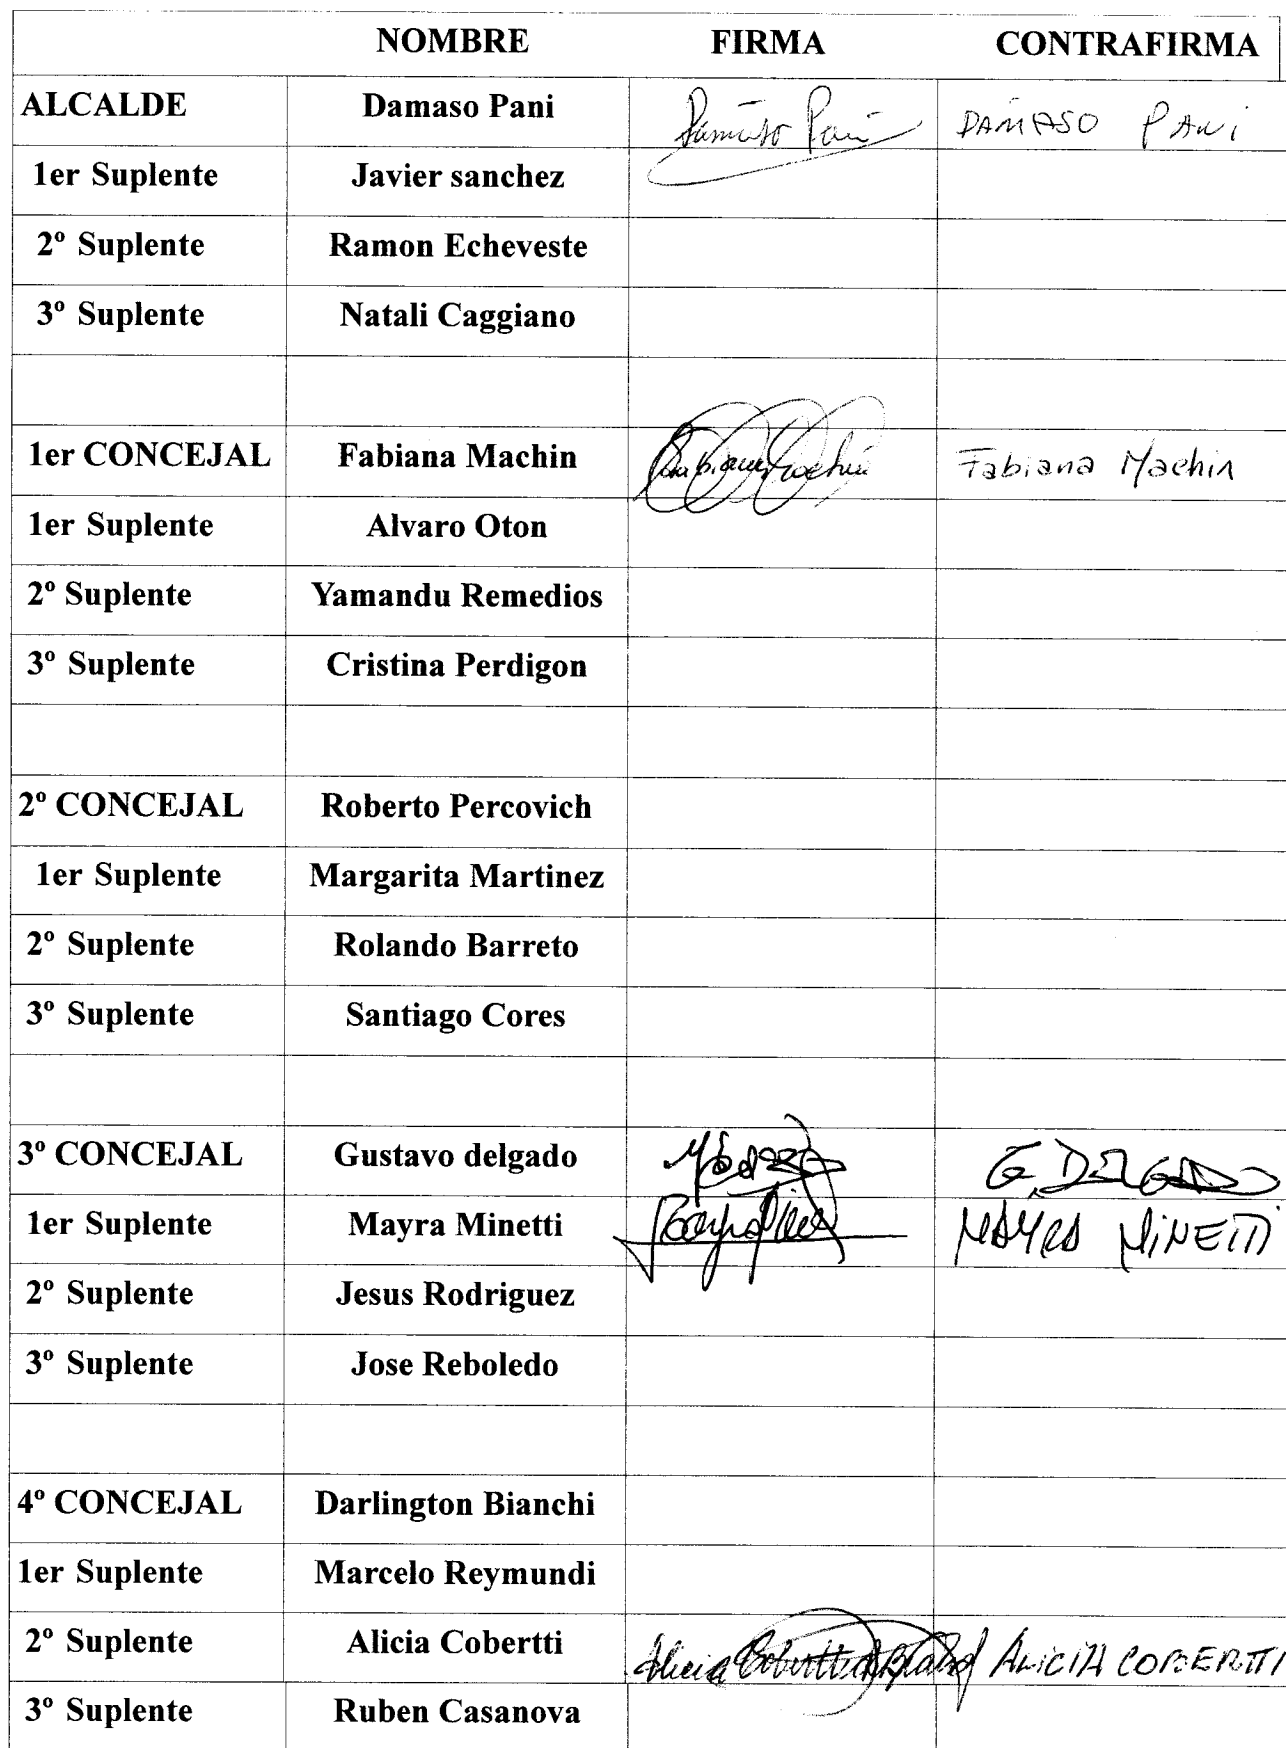 NOMBRE FIRMA CONTRAFIRMA
ALCALDE Damaso Pani Damaso Pani DAMASO PANI
1er Suplente Javier sanchez
2º Suplente Ramon Echeveste
3º Suplente Natali Caggiano
1er CONCEJAL Fabiana Machin Fabiana Machin Fabiana Machin
1er Suplente Alvaro Oton
2º Suplente Yamandu Remedios
3º Suplente Cristina Perdigon
2º CONCEJAL Roberto Percovich
1er Suplente Margarita Martinez
2º Suplente Rolando Barreto
3º Suplente Santiago Cores
3º CONCEJAL Gustavo delgado G. DELGADO
1er Suplente Mayra Minetti MAYRA MINETTI
2º Suplente Jesus Rodriguez
3º Suplente Jose Reboledo
4º CONCEJAL Darlington Bianchi
1er Suplente Marcelo Reymundi
2º Suplente Alicia Cobertti Alicia Cobertti ALICIA COBERTTI
3º Suplente Ruben Casanova